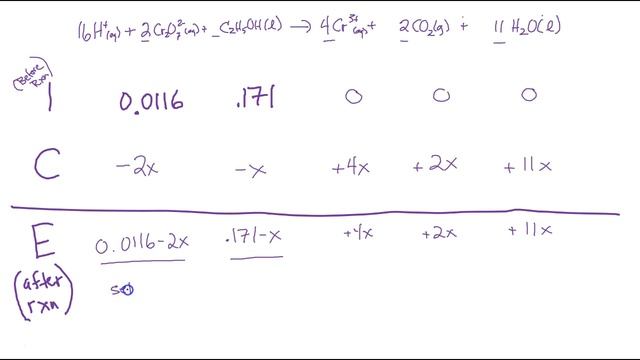 16H⁺(aq) + 2Cr₂O₇²⁻(aq) + _C₂H₅OH(l) → 4Cr³⁺(aq) + 2CO₂(g) + 11H₂O(l)
(Before Rxn)
I 0.0116 .171 0 0 0
C -2x -x +4x +2x +11x
E 0.0116-2x .171-x +4x +2x +11x
(after rxn)
so